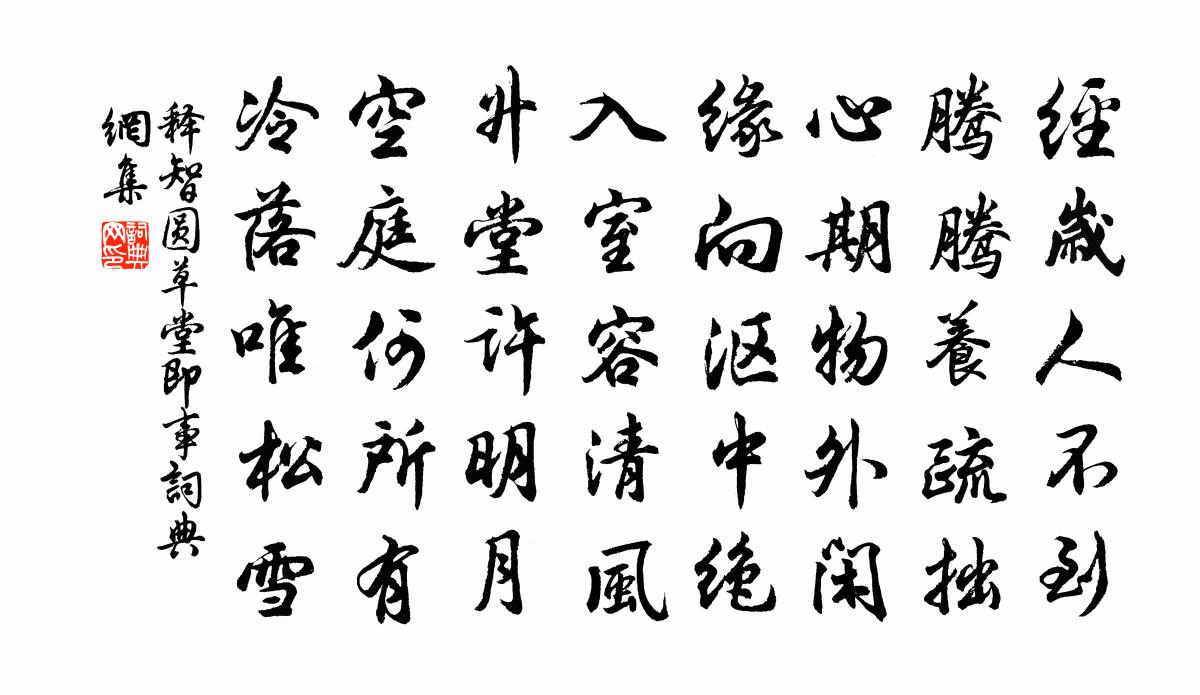 經歲人不到
騰騰養疏拙
心期物外閑
緣向漚中絶
入室容清風
升堂許明月
空庭何所有
冷落唯松雪
释智圆草堂即事詞典
網集
詞典网印